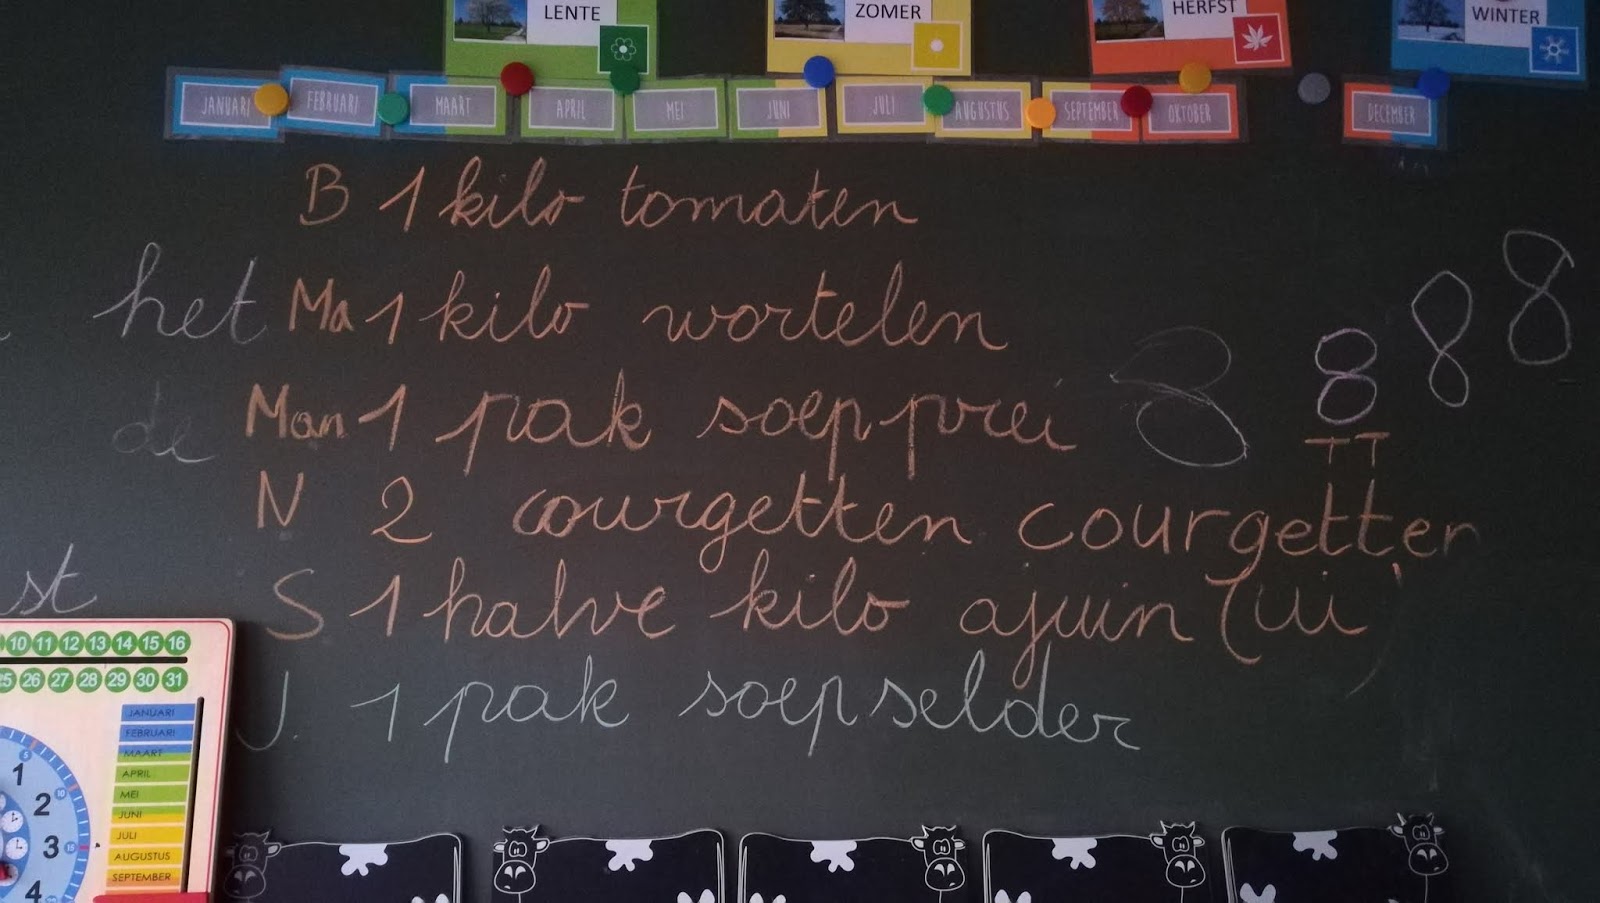 LENTE ZOMER HERFST WINTER
JANUARI FEBRUARI MAART APRIL MEI JUNI JULI AUGUSTUS SEPTEMBER OKTOBER DECEMBER
B 1 kilo tomaten
het Ma 1 kilo wortelen 8 8 8 8
de Man 1 pak soepprei
TT
N 2 courgetten courgetten
st S 1 halve kilo ajuin (ui)
J. 1 pak soepselder
10 11 12 13 14 15 16
25 26 27 28 29 30 31
JANUARI
FEBRUARI
MAART
APRIL
MEI
JUNI
JULI
AUGUSTUS
SEPTEMBER
5
1
2 10
3 15
4